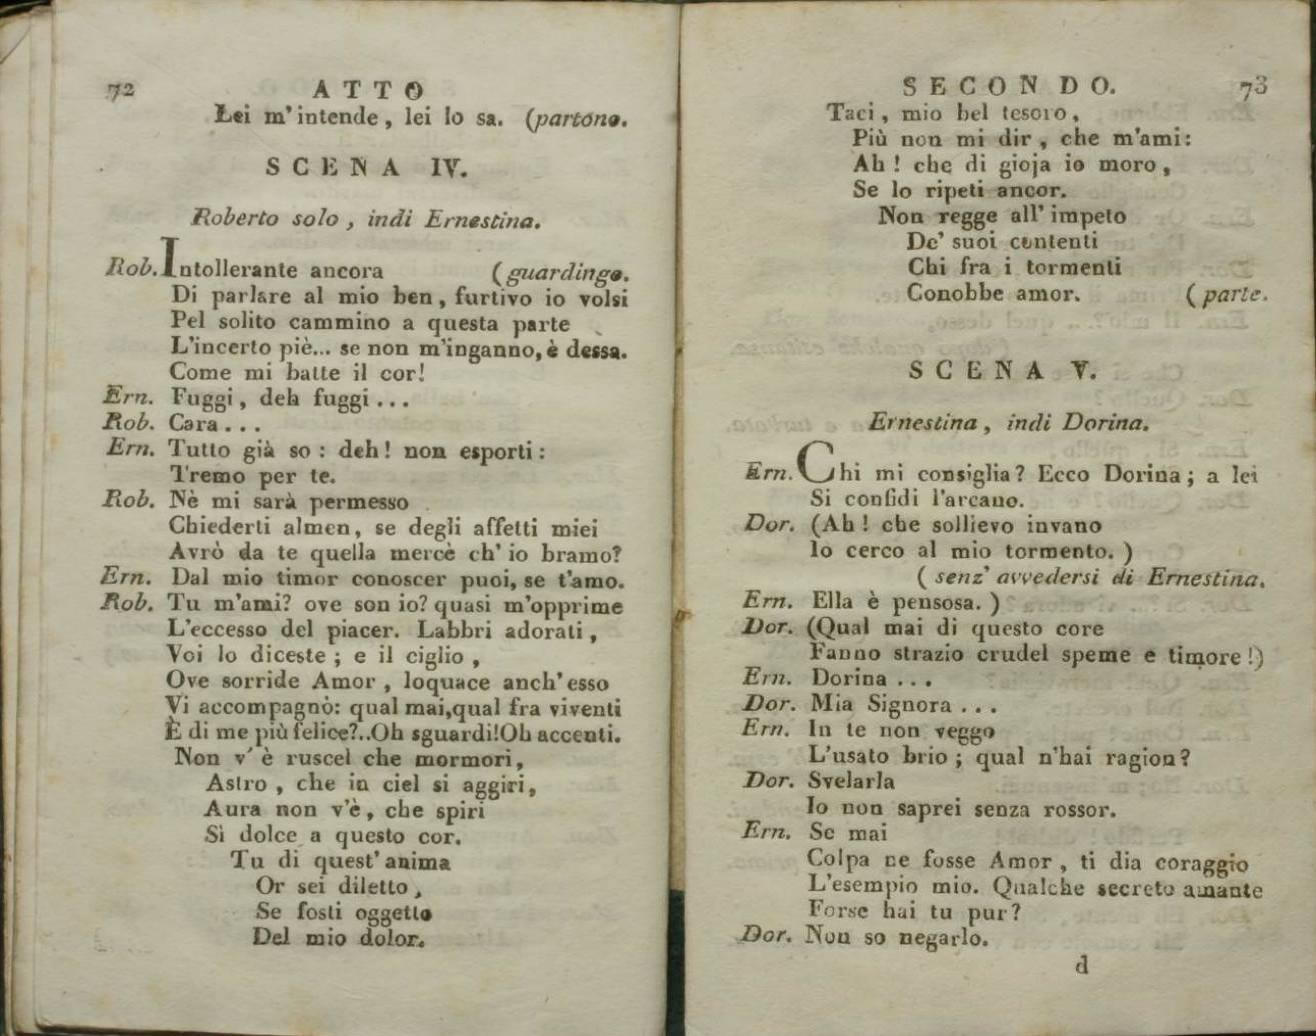 72
ATTO
Lei m'intende, lei lo sa. (partono.
SCENA IV.
Roberto solo, indi Ernestina.
Rob. Intollerante ancora (guardingo.
Di parlare al mio ben, furtivo io volsi
Pel solito cammino a questa parte
L'incerto piè... se non m'inganno, è dessa.
Come mi batte il cor!
Ern. Fuggi, deh fuggi...
Rob. Cara...
Ern. Tutto già so: deh! non esporti:
Tremo per te.
Rob. Nè mi sarà permesso
Chiederti almen, se degli affetti miei
Avrò da te quella mercè ch' io bramo?
Ern. Dal mio timor conoscer puoi, se t'amo.
Rob. Tu m'ami? ove son io? quasi m'opprime
L'eccesso del piacer. Labbri adorati,
Voi lo diceste; e il ciglio,
Ove sorride Amor, loquace anch' esso
Vi accompagnò: qual mai, qual fra viventi
È di me più felice?.. Oh sguardi! Oh accenti.
Non v' è ruscel che mormori,
Astro, che in ciel si aggiri,
Aura non v'è, che spiri
Sì dolce a questo cor.
Tu di quest' anima
Or sei diletto,
Se fosti oggetto
Del mio dolor.
SECONDO.
73
Taci, mio bel tesoro,
Più non mi dir, che m'ami:
Ah! che di gioja io moro,
Se lo ripeti ancor.
Non regge all' impeto
De' suoi contenti
Chi fra i tormenti
Conobbe amor. (parte.
SCENA V.
Ernestina, indi Dorina.
Ern. Chi mi consiglia? Ecco Dorina; a lei
Si confidi l'arcano.
Dor. (Ah! che sollievo invano
Io cerco al mio tormento.)
(senz' avvedersi di Ernestina.
Ern. Ella è pensosa.)
Dor. (Qual mai di questo core
Fanno strazio crudel speme e timore!)
Ern. Dorina...
Dor. Mia Signora...
Ern. In te non veggo
L'usato brio; qual n'hai ragion?
Dor. Svelarla
Io non saprei senza rossor.
Ern. Se mai
Colpa ne fosse Amor, ti dia coraggio
L'esempio mio. Qualche secreto amante
Forse hai tu pur?
Dor. Non so negarlo.
d